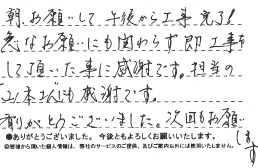 朝お願いして午後から工事完了!
急なお願いにも関わらず即工事を
して頂いた事に感謝です。担当の
山本さんも感謝です。
有りがとうございました。次回もお願い
します
●ありがとうございました。今後ともよろしくお願いいたします。
◎皆様から頂いた個人情報は、弊社のサービスのご提供、及びご案内以外には使用いたしません。